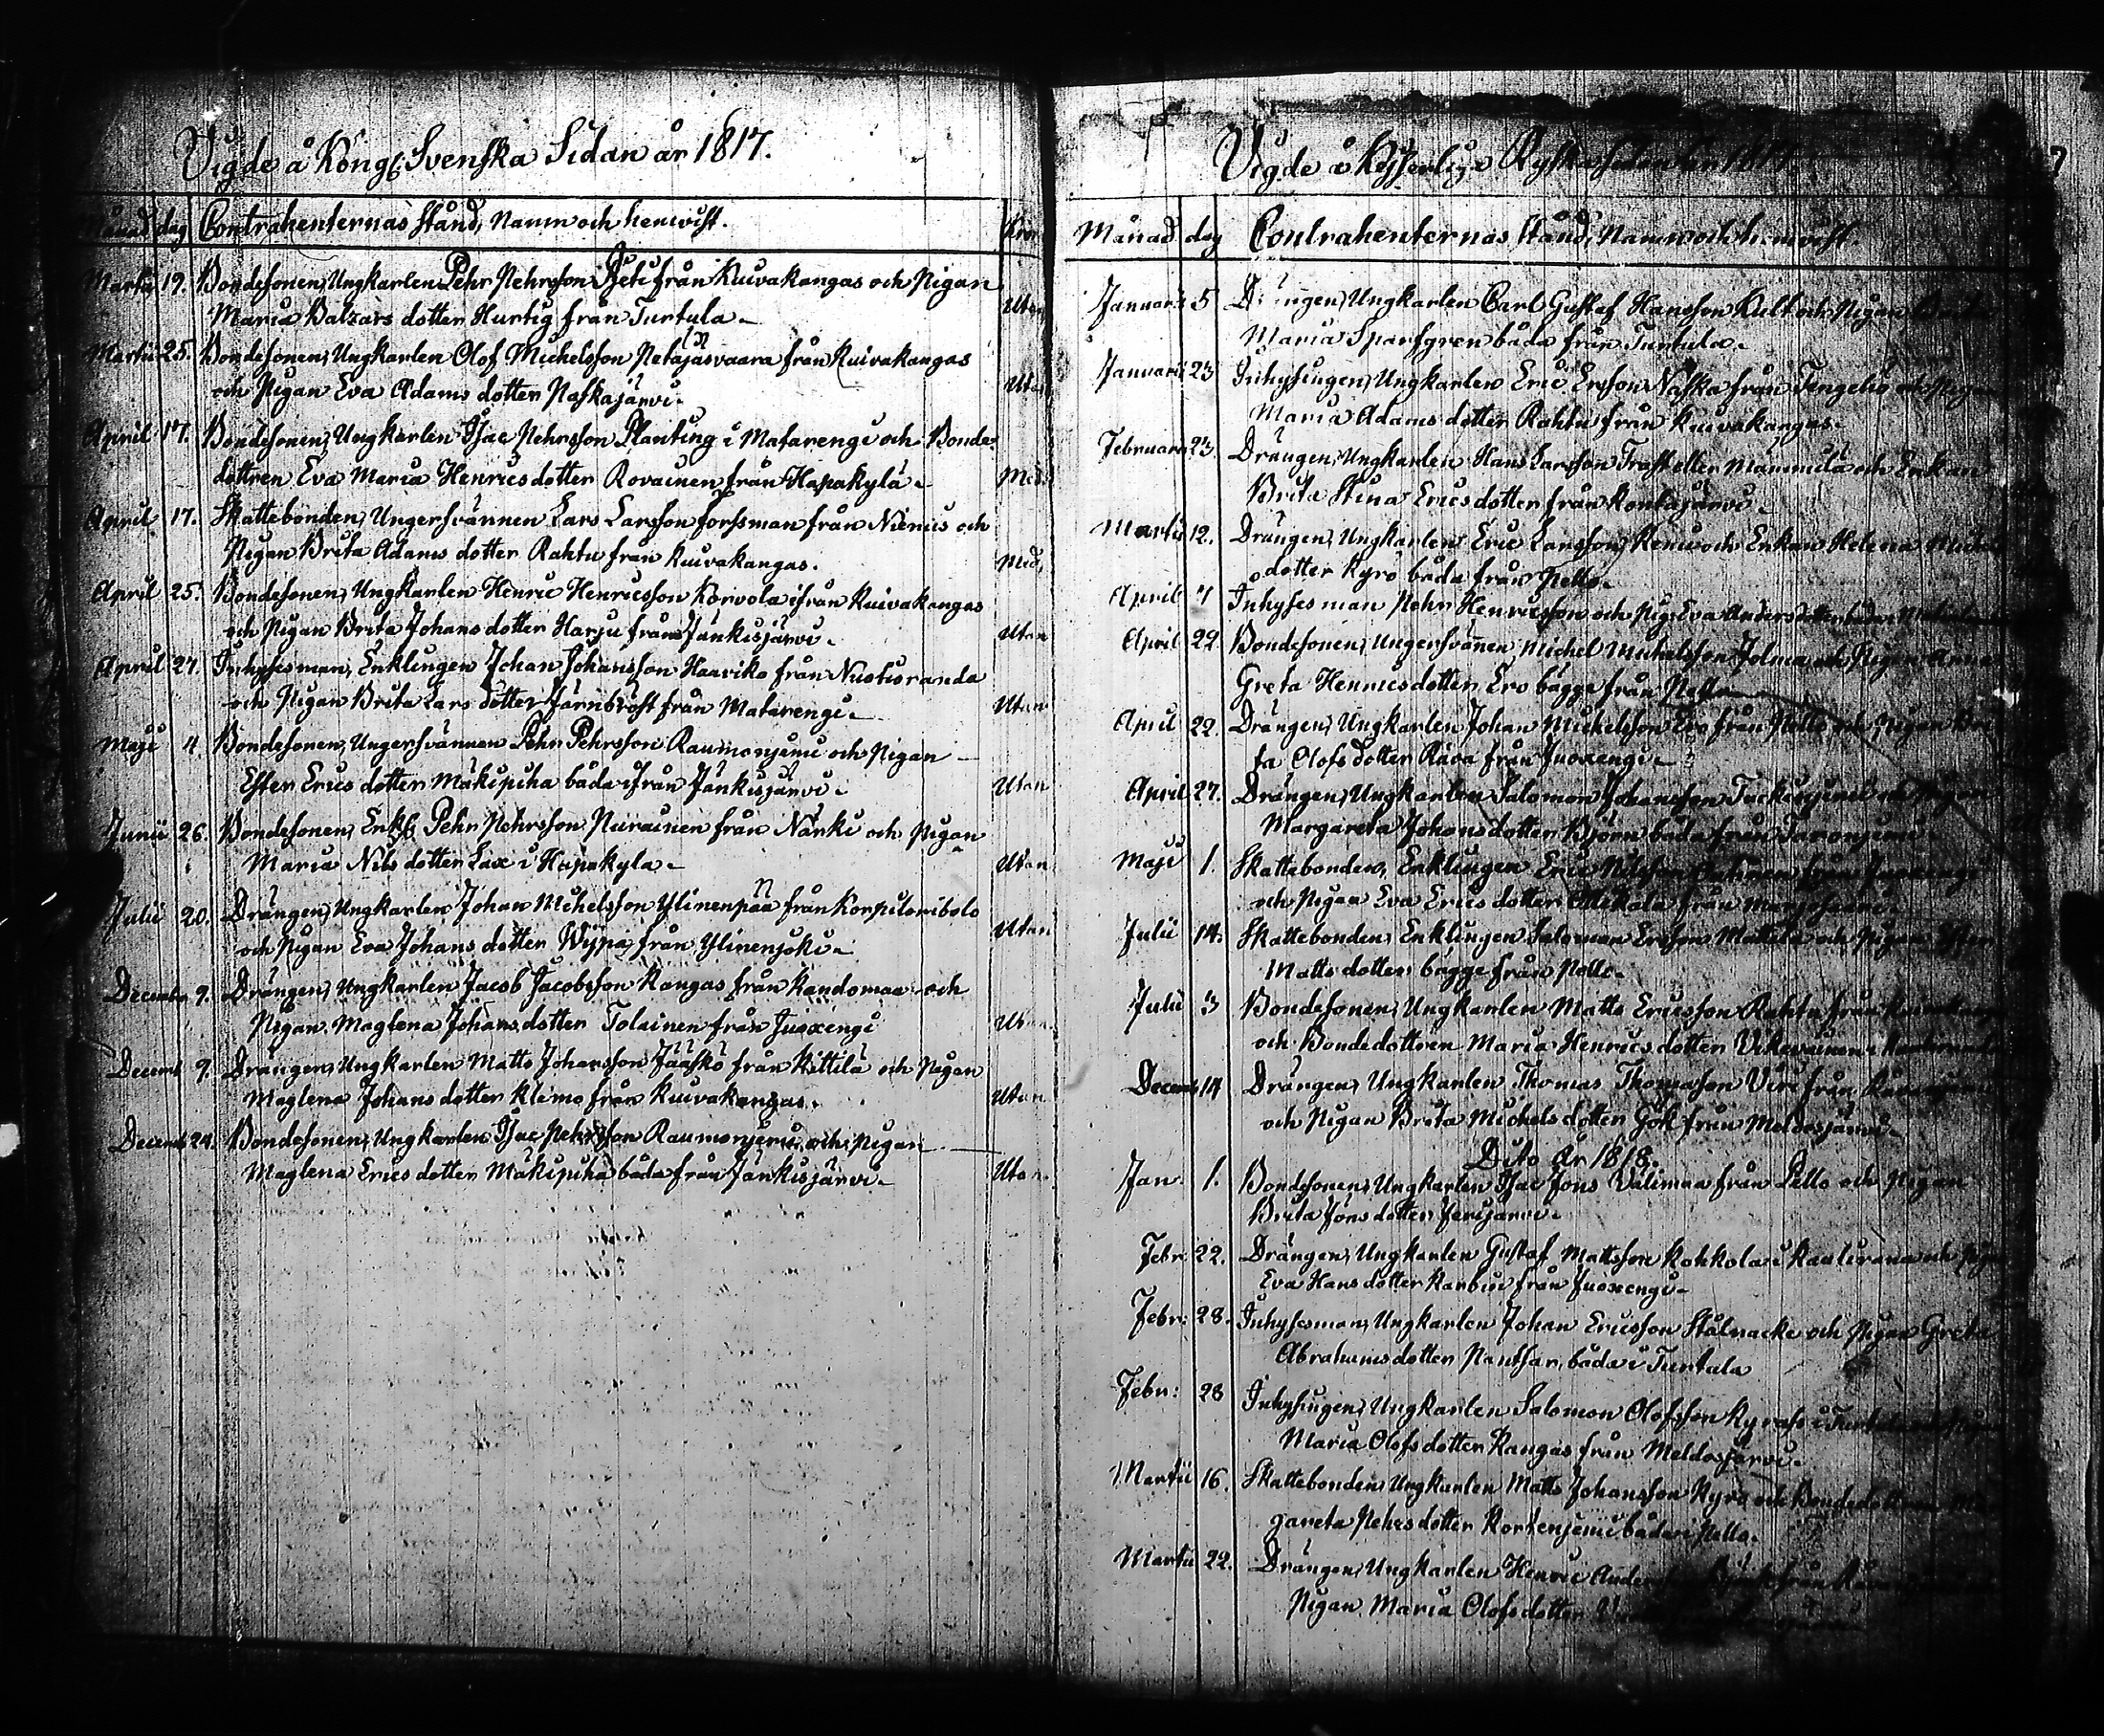 Vigde å Kongl. Svenska Sidan år 1817.
Månad dag Contrahenternas stånd, Namn och hemvist.
Martii 19. Bondesonen, Ungkarlen Pehr Pehrsson från Kuivakangas och Pigan
Maria Balzars dotter Hurtig från Turtula. Utan
Martii 25. Bondesonen, Ungkarlen Olof Michelsson från Kuivakangas
och Pigan Eva Adams dotter Paskajärvi. Utan
April 17. Bondesonen, Ungkarlen Isac Pehrsson Planting i Matarengi och Bonde-
dottren Eva Maria Henrics dotter Rovainen från Hapakylä. Med
April 17. Skattebonden, Ungersvännen Lars Larsson Forssman från Niemis och
Pigan Brita Adams dotter Rahtu från Kuivakangas. Med
April 25. Bondesonen, Ungkarlen Henric Henricsson Korvola ifrån Kuivakangas
och Pigan Brita Johans dotter Harju från Jänkisjärvi. Utan
April 27. Inhysesman, Enklingen Johan Johansson Haariko från Nuotioranda
och Pigan Brita Lars dotter Järnbröst från Matarengi. Utan
Maji 4 Bondesonen, Ungersvännen Pehr Pehrsson Raumonjemi och Pigan
Ester Erics dotter Mäkipiha båda ifrån Jänkisjärvi. Utan
Junii 26. Bondesonen, Enkl. Pehr Pehrsson från Närki och Pigan
Maria Nils dotter Lax i Hapakyla. Utan
Julii 20. Drängen, Ungkarlen Johan Michelsson Ylinenpää från Korpilombolo
och Pigan Eva Johans dotter Wypä, från Ylinenjoki. Utan
December 9. Drängen, Ungkarlen Jacob Jacobsson Kangas från Kandomaa och
Pigan Maglena Johans dotter Tolainen från Juoxengi Utan
Decemb 9. Drängen, Ungkarlen Matts Johansson Jääskö från Kittilä och Pigan
Maglena Johans dotter Klimo från Kuivakangas. Utan
Decemb 24. Bondesonen, Ungkarlen Isac Pehrsson Raumonjemi och Pigan
Maglena Erics dotter Mäkipiha båda från Jänkisjärvi. Utan
Vigde å Kejserlige Ryska sidan år 1817.
Månad dag Contrahenternas stånd, Namn och hemvist.
Januarii 5 Drängen, Ungkarlen Carl Gustaf Hansson Kult och Pigan
Maria Sparfgren båda från Turtula.
Januarii 23 Inhysingen, Ungkarlen Eric Ersson Vaska från Tengeliö och Pigan
Maria Adams dotter Rahtu från Kuivakangas.
Februarii 23 Drängen, Ungkarlen Hans Larsson Trast eller Mämmilä och Enkan
Brita Stina Erics dotter från Kontajärvi.
Martii 12. Drängen, Ungkarlen Eric Larsson, och Enkan Helena
dotter Kyrö båda från Pello.
April 7 Inhysesman Pehr Henricsson och Pig. Eva Anders dotter båda
April 22 Bondesonen, Ungersvännen, Michel Michelsson Jolma och Pigan Anna
Greta Henrics dotter Ero bägge från Pello
April 22. Drängen, Ungkarlen Johan Michelsson Ero från Pello och Pigan
ta Olofs dotter Räva från Juoxengi.
April 27. Drängen, Ungkarlen Salomon Johansson och Pigan
Margareta Johans dotter Björn båda från
Maji 1. Skattebonden, Enklingen Eric Nilsson från Juoxengi
och Pigan Eva Erics dotter Alkkola från Marjosaari.
Julii 14. Skattebonden, Enklingen Salomon Ersson Mattila och Pigan Ester
Matts dotter bägge från Pello.
Julii 3 Bondesonen, Ungkarlen Matts Ericsson Rahtu från Kuivakangas
och Bondedottren Maria Henrics dotter
Decemb 14 Drängen, Ungkarlen Thomas Thomasson Viri från
och Pigan Brita Michels dotter Gök från Meldosjärvi.
Dito År 1818.
Jan. 1. Bondesonen, Ungkarlen Isac Jöns Välimaa från Pello och Pigan
Brita Jöns dotter Jerijärvi.
Febr: 22. Drängen, Ungkarlen Gustaf Mattsson Kohkola i Kauliranda och Pigan
Eva Hans dotter Karbin från Juoxengi.
Febr: 28. Inhysesman, Ungkarlen Johan Ericsson Stålnacke och Pigan Greta
Abrahams dotter Pantsar, båda i Turtula
Febr: 28 Inhysingen, Ungkarlen Salomon Olofsson i Turtula och Pigan
Maria Olofs dotter Kangas från Meldosjärvi.
Martii 16. Skattebonden, Ungkarlen Matts Johansson Kyrö och Bondedottren Mar-
gareta Pehrs dotter Kortenjemi båda i Pello.
Martii 22. Drängen, Ungkarlen Henric från
Pigan Maria Olofs dotter